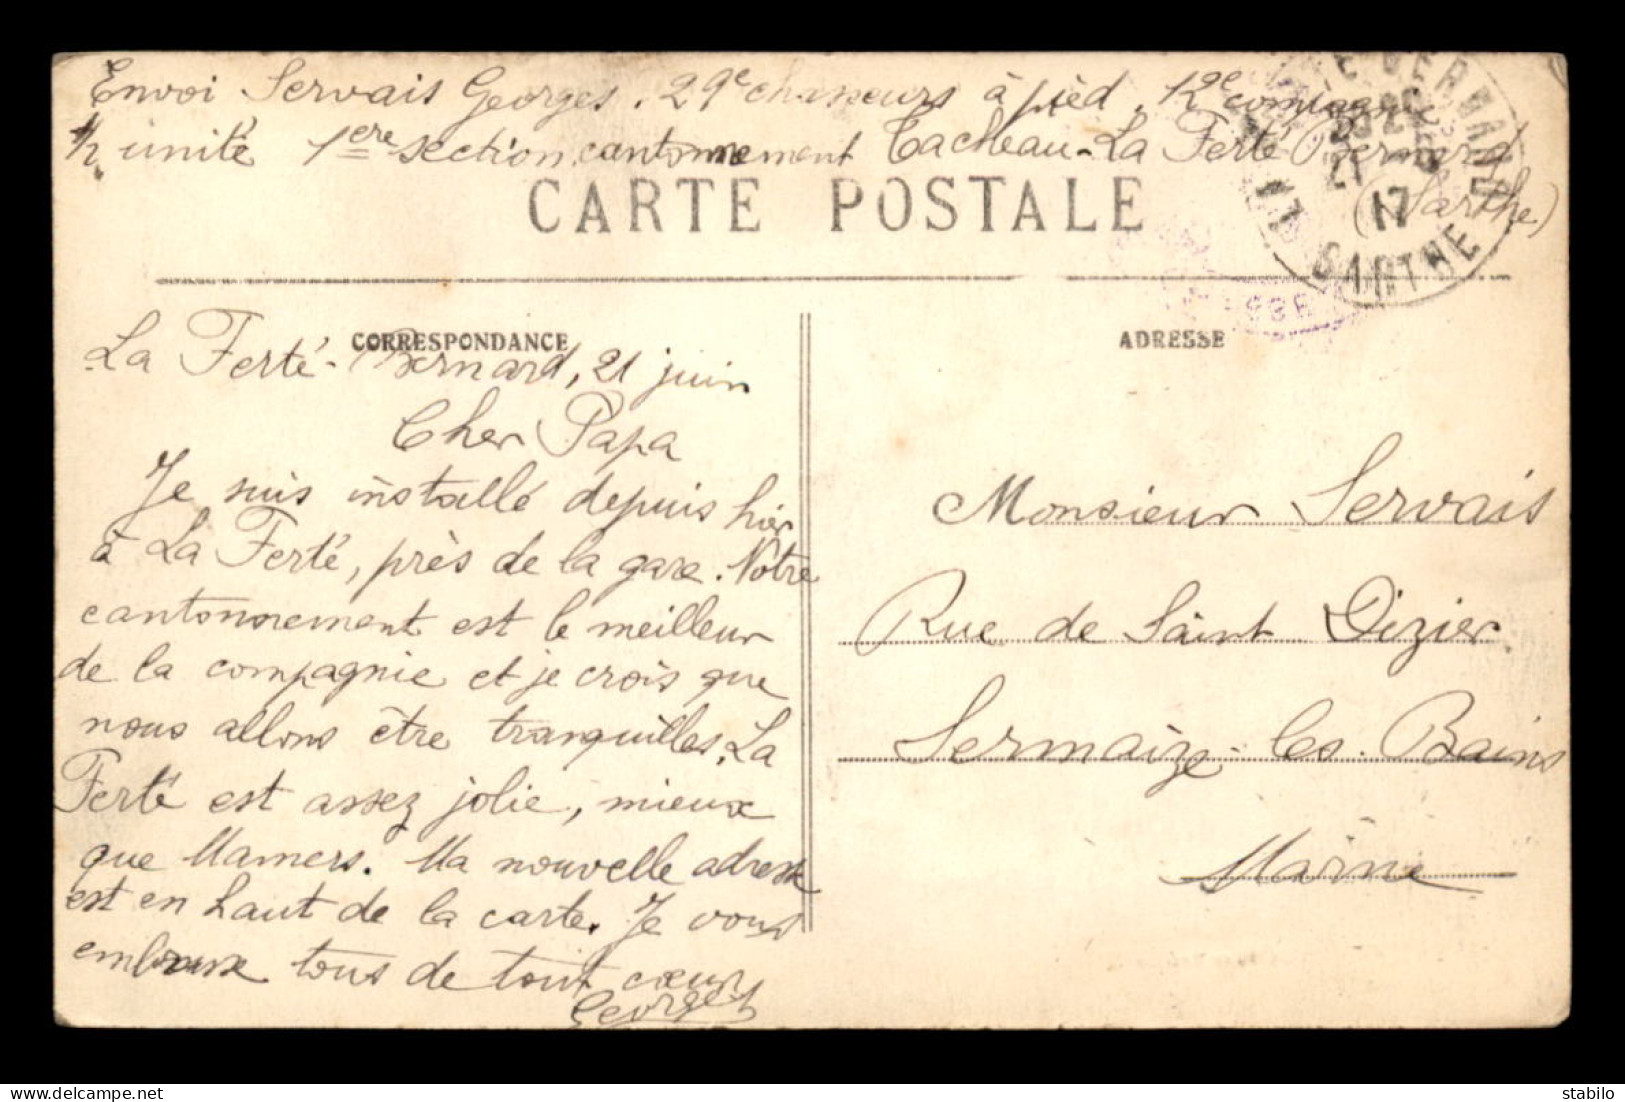 Envoi Servais Georges. 29e chasseurs à pied. 12e compagnie
1/2 unité 1ere section cantonnement Cacheau-La Ferté Bernard
(Sarthe)
CARTE POSTALE
17
SARTHE
CORRESPONDANCE
ADRESSE
La Ferté-Bernard, 21 juin
Cher Papa
Je suis installé depuis hier
à La Ferté, près de la gare. Notre
cantonnement est le meilleur
de la compagnie et je crois que
nous allons être tranquilles. La
Ferté est assez jolie, mieux
que Mamers. Ma nouvelle adresse
est en haut de la carte. Je vous
embrasse tous de tout cœur
Georges
Monsieur Servais
Rue de Saint Dizier
Sermaize-les-Bains
Marne
stabilo